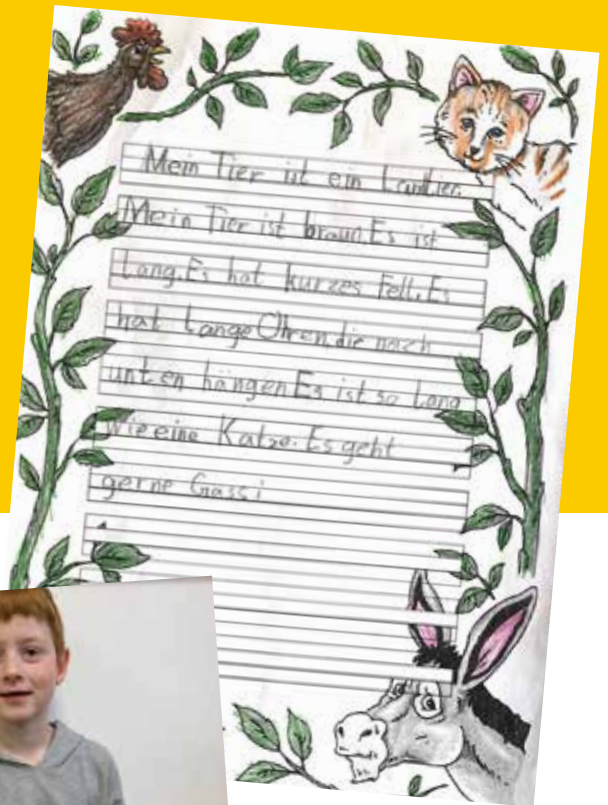 Mein Tier ist ein Landtier.
Mein Tier ist braun. Es ist
Lang. Es hat kurzes Fell. Es
hat Lange Ohren, die nach
unten hängen Es ist so Lang
wie eine Katze. Es geht
gerne Gassi